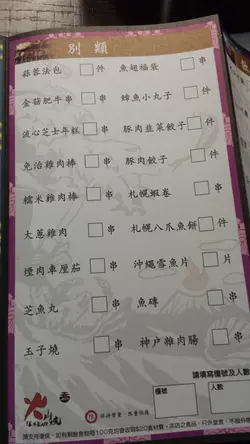 別類
蒜蓉法包 件 魚翅福袋 串
金菇肥牛串 串 蟑魚小丸子 件
流心芝士年糕 串 豚肉韮菜餃子 件
免治雞肉棒 串 豚肉餃子 件
糯米雞肉棒 串 札幌蝦卷 串
大蔥雞肉 串 札幌八爪魚餅 件
煙肉車厘茄 串 沖繩雪魚片 片
芝魚丸 串 魚磚 串
玉子燒 串 神户雜肉腸 串
請填寫檯號及人數
檯號 人數